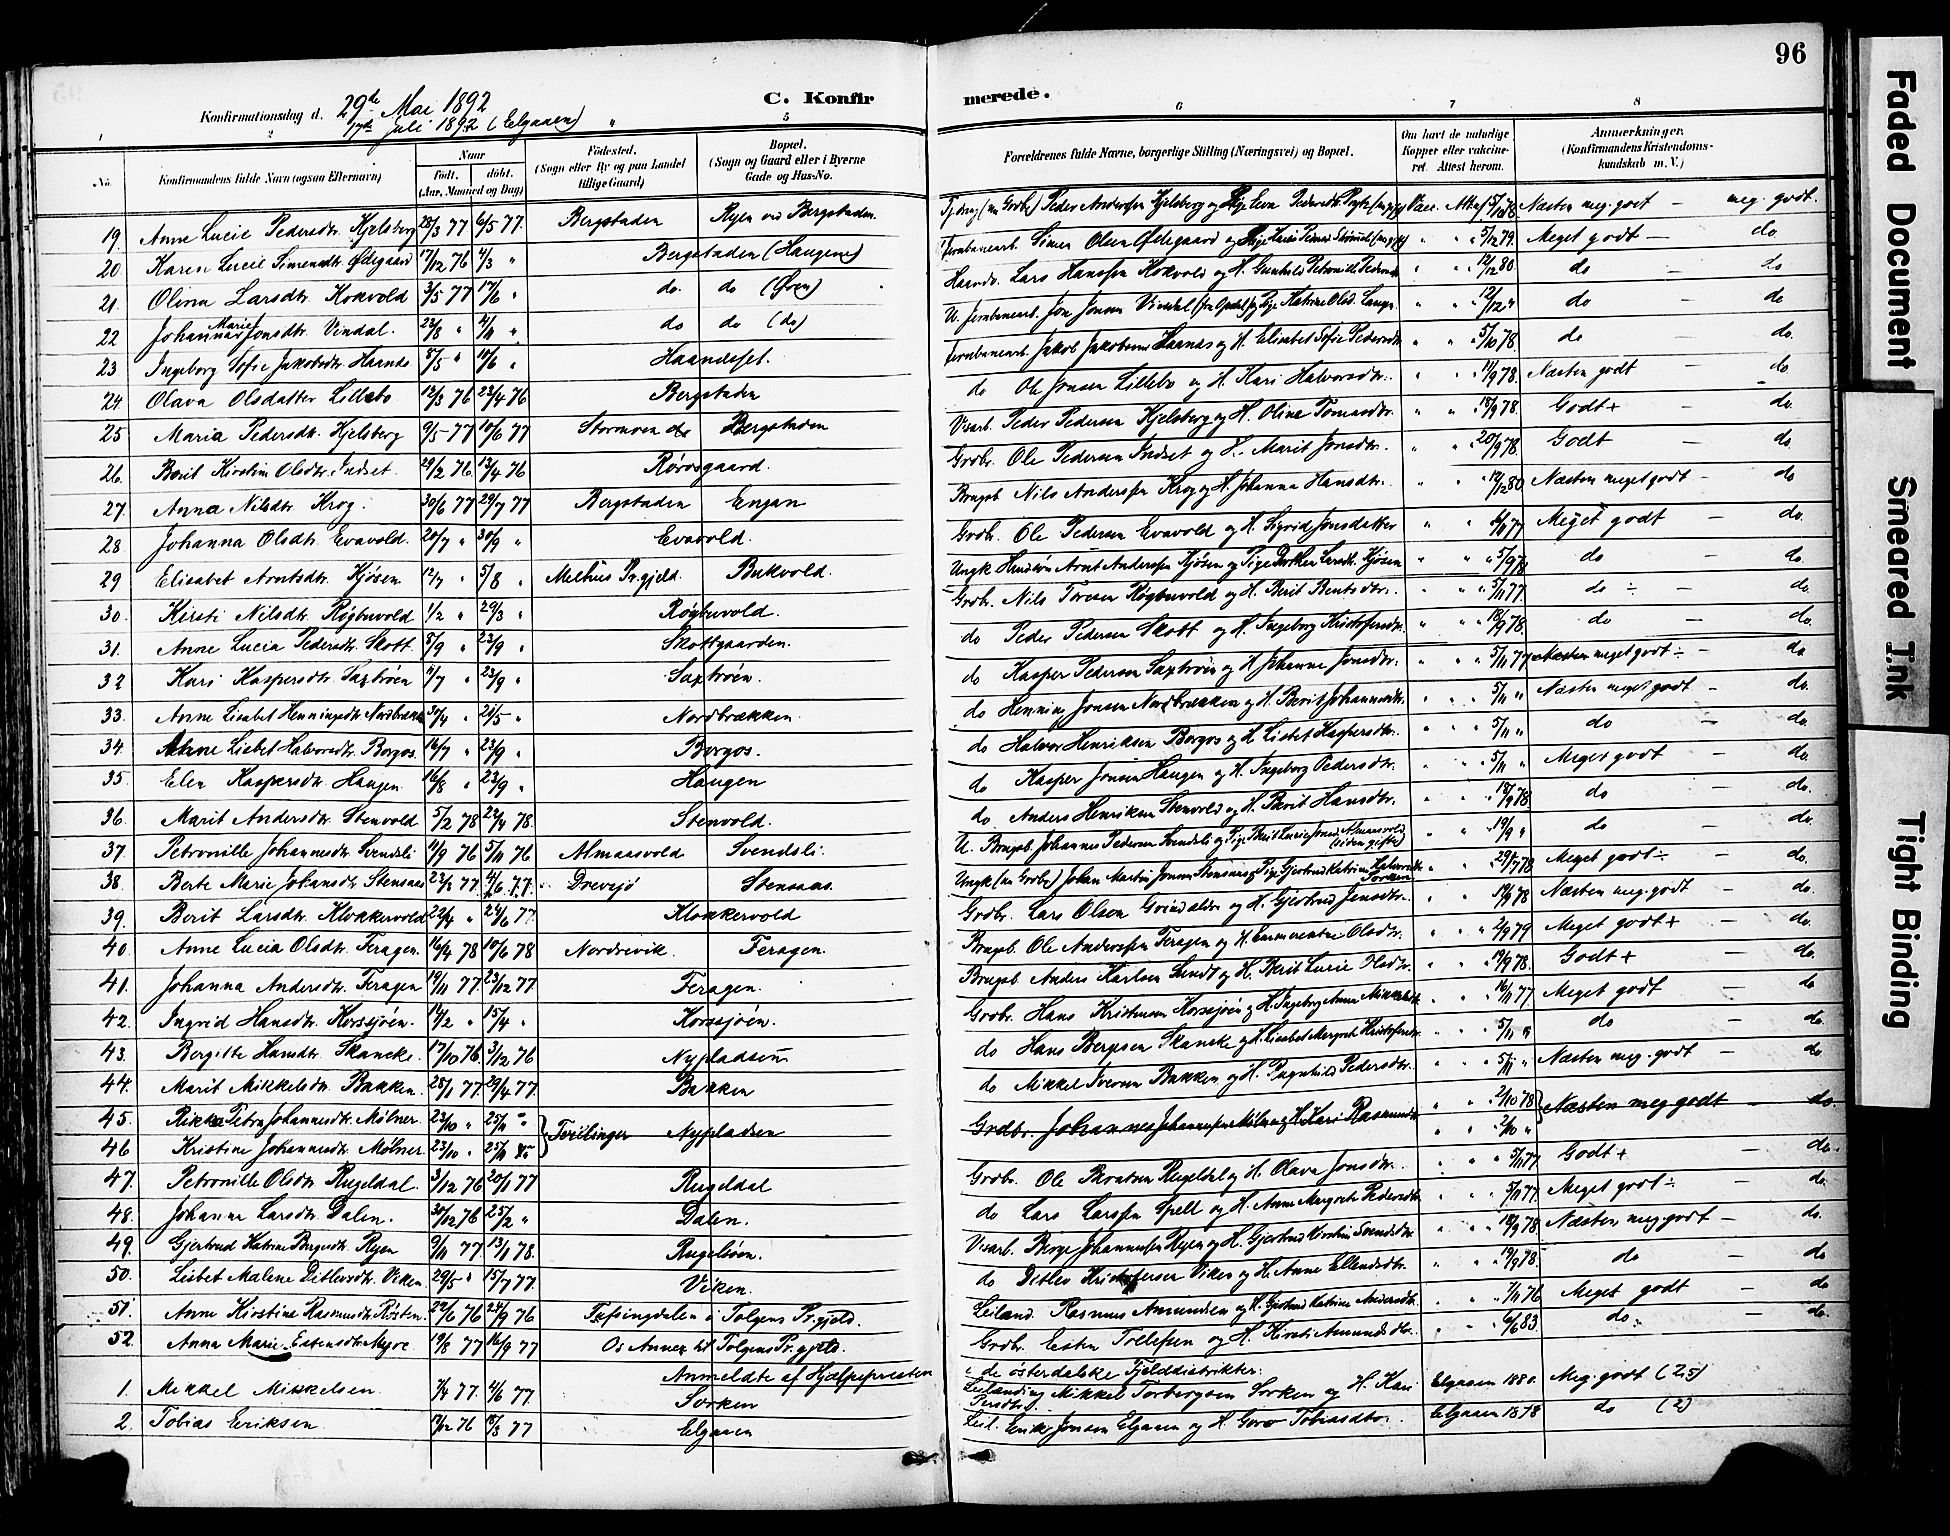 96
Konfirmationsdag d. 29de Mai 1892
17de Juli 1892 (Elgaaen)
C. Konfir merede.
1 2 5 6 7 8
No. Konfirmandens fulde Navn (ogsaa Efternavn) Naar født. døbt. (Aar, Maaned og Dag) Fødested. (Sogn eller By og paa Landet tillige Gaard) Bopæl. (Sogn og Gaard eller i Byerne Gade og Hus-No. Forældrenes fulde Navne, borgerlige Stilling (Næringsvei) og Bopæl. Om havt de naturlige Kopper eller vaccineret. Attest herom. Anmærkninger. (Konfirmandens Kristendomskundskab m. V.)
19. Anne Lucie Pedersdtr. Hjelsberg 28/3 77 6/5 77. Bergstaden Ryen ved Bergstaden. Peder Andersen Hjelsberg og Vacc. Næsten meg. godt – meg. godt.
20. Karen Lucie Simensdtr. Ødegaard 17/12 76 4/3 " Bergstaden (Haugene) Jernbanearb. Simen Olsen Ødegaard og " " 5/12 79. Meget godt – do
21. Olina Larsdtr. Kokvold 3/5 77 17/6 " do. do (Øren) Haandv. Lars Hansen Kokvold og H. Gunhild Petronille Pedersdtr " " 12/12 80. do – do
22. Johanna Marie Jonsdtr. Vindal. 23/8 " 4/11 " do do (do) U. Jernbanearb. Jon Jonsen Vindal og Pige Katrine Olsd. " " 12/12 " do – do
23. Ingeborg Sofie Jakobsdtr. Haands 8/5 " 10/6 " Haandsset. Jernbanearb. Jakob Jakobsen Haands og H. Elisabet Sofie Pedersdtr " " 5/10 78. do do.
24. Olava Olsdatter Lillebo 12/3 76 23/4 76 Bergstaden do Ole Jonsen Lillebo og H. Kari Halvorsdtr. " " 11/9 78. Næsten godt – do
25. Maria Pedersdtr. Hjelsberg 9/5 77 10/6 77 Stormoen do Bergstaden Visarb. Peder Pedersen Hjelsberg og H. Olina Tomasdtr. " " 18/9 78. Godt + – do.
26. Berit Kirstine Olsdtr. Indset. 29/2 76. 13/4 76 Rørosgaard. Grdbr. Ole Pedersen Indset og H. Marit Jonsdtr. " " 20/9 78. Godt – do.
27. Anna Nilsdtr. Krog. 30/6 77 29/7 77 Bergstaden Enjan Brugsb. Nils Andersen Krog og H. Johanna Hansdtr. " " 12/12 80. Næsten meget godt – do
28. Johanna Olsdtr. Evavold. 20/7 " 30/9 " Evavold. Grdb. Ole Pedersen Evavold og H. Sigrid Jonsdatter " " Meget godt – do.
29 Elisabet Arntsdtr. Hjøsen 12/7 " 5/8 " Melhus Pr.gjeld. Bukvold. Ungk. Arnt Andersen Hjøsen og Pige Larsdtr. Hjøsen " " 5/9 78 do – do.
30. Kirsti Nilsdtr. Røgbuvold 1/2 " 29/3 " Røgbuvold. Grdbr. Nils Toresen Røgbuvold og H. Berit Bentsdtr. " " 5/11 77 do ÷ – do.
31. Anne Lucia Pedersdtr. Skott. 8/9 " 23/9 " Skottgaarden. do Peder Pedersen Skott og H. Ingeborg Kristofersdtr. " " 18/9 78. do – do.
32 Kari Kaspersdtr. Saxtrøen 11/7 " 23/9 " Saxtrøen. do Kasper Pedersen Saxtrøen og H. Johanne Jonsdtr. " " 5/11 77 Næsten meget godt ÷ – do
33. Anne Lisabet Henningsdtr. Nordbrækken 30/4 " 21/5 " Nordbrækken. do Henning Jonsen Nordbrækken og H. Berit Johannesdtr. " " 5/11 " Næsten meget godt – do.
34. Anne Lisbet Halvorsdtr. Borgos. 16/7 " 23/9 " Borgos. do Halvor Henriksen Borgos og H. Lisbet Kaspersdtr. " " 5/11 " do – do.
35. Elen Kaspersdtr. Haugen. 16/8 " 23/9 " Haugen do Kasper Jonsen Haugen og H. Ingeborg Pedersdtr. " " 5/11 " Meget godt – do.
36. Marit Andersdtr. Stenvold 5/2 78 22/4 78. Stenvold. do. Anders Henriksen Stenvold og H. Berit Hansdtr. " " 18/9 78. do – do.
37. Petronille Johannesdtr. Svendsli 11/9 76 5/11 76 Almaasvold Svendsli. U. Brugsb. Johannes Pedersen Svendsli og Pige Berit Lucie Jonsd. Almaasvold (siden gifte) " " 19/9 " do – do.
38. Berte Marie Johansdtr. Stensaas 23/3 77. 4/6 77. Drevsjø Stensaas. Ungk (nu Grdbr) Johan Martin Jonsen Stensaas og Pige Gjertrud Katrine Halvorsdtr. Sorken " " 29/7 78 Meget godt ÷ – do.
39. Berit Larsdtr. Klokkervold 22/4 " 24/6 77. Klokkervold Grdbr. Lars Olsen Grindalen og H. Gjertrud Jensdtr. " " 19/9 78 Næsten meg. godt – do.
40. Anne Lucia Olsdtr. Feragen. 16/4 78 10/6 78 Nordrevik. Feragen. Brugsb. Ole Andersen Feragen og H. Olsdtr. " " 2/9 79 Meget godt + – do.
41. Johanna Andersdtr. Feragen 19/11 77. 23/12 77. Feragen. Brugsb. Anders Karlsen Lundt og H. Berit Lucie Olsdtr. " " 17/9 78. Godt + – do.
42. Ingrid Hansdtr. Korssjøen. 14/2 " 15/4 " Korssjøen. Grdbr. Hans Kristensen Korssjøen og H. Ingeborg Anna Mikkelsdtr. " " 16/11 77 Meget godt – do
43. Bergitte Hansdtr. Skancke. 17/10 76. 3/12 76 Nypladsen do Hans Bergesen Skancke og H. Lisabet Margrete Kristofersdtr. " " 5/11 " do – do.
44. Marit Mikkelsdtr. Bakken. 28/1 77. 29/4 77. Bakken do Mikkel Iversen Bakken og H. Ragnhild Pedersdtr. " " 5/11 " Næsten meg. godt – do
45. Rikka Petra Johannesdtr. Mølner. 23/10 " 25/11 " Tvillinger Nypladsen Grdbr. Johannes Johannesen Mølner og H. Kari Rasmusdtr " " 2/10 78 Næsten meg godt – do.
46 Kristine Johannesdtr. Mølner. 23/10 " 25/11 " " " 2/10 "
47. Petronille Olsdtr. Rugeldal. 3/12 76 20/1 77 Rugeldal Grdbr. Ole Bentsen Rugeldal og H. Olava Jonsdtr. " " 5/11 77. Godt + – do.
48. Johanne Larsdtr. Dalen. 30/12 76 25/2 " Dalen. do Lars Larsen Spell og H. Anne Margrete Pedersdtr. " " 5/11 77. Meget godt ÷ – do.
49. Gjertrud Katrine Bergesdtr. Ryen 9/11 77 13/1 78. Rugelsøen. Visarb. Berge Johannesen Ryen og H. Gjertrud Kirstine Svendsdtr. " " 18/9 78. Næsten meg. godt – do.
50. Lisbet Malene Ditlevsdtr. Viken 29/5 " 15/7 77. Viken. do Ditlev Kristofersen Viken og H. Anne Ellendsdtr. " " 19/9 78. do – do
51. Anne Kirstine Rasmusdtr. Røsten. 22/6 76 24/9 76 Tufsingdalen i Tolgens Pr.gjeld. Leiland. Rasmus Amundsen og H. Gjertrud Katrine Andersdtr. " " 7/11 76 Meget godt – do
52. Anna Marie Estensdtr. Myre 19/8 77 16/9 77 Os Annex til Tolgens Pr. gjeld. Grdbr. Esten Tollefsen og H. Kirsti Amundsdtr. " " 6/6 83. do. – do.
Anmeldte af Hjælpepresten i de østerdalske Fjelddistrikter.
1. Mikkel Mikkelsen. 7/4 77. 4/6 77. Sorken Leilending Mikkel Torbergsen Sorken og H. Kari Persdtr. Elgaaen 1880. Meg. godt (2,5)
2. Tobias Eriksen 12/12 76 18/3 77 Elgaaen Leil. Erik Jonsen Elgaaen og H. Goro Tobiasdtr. Elgaaen 1878 do (2)
Faded Document
Smeared Ink
Tight Binding